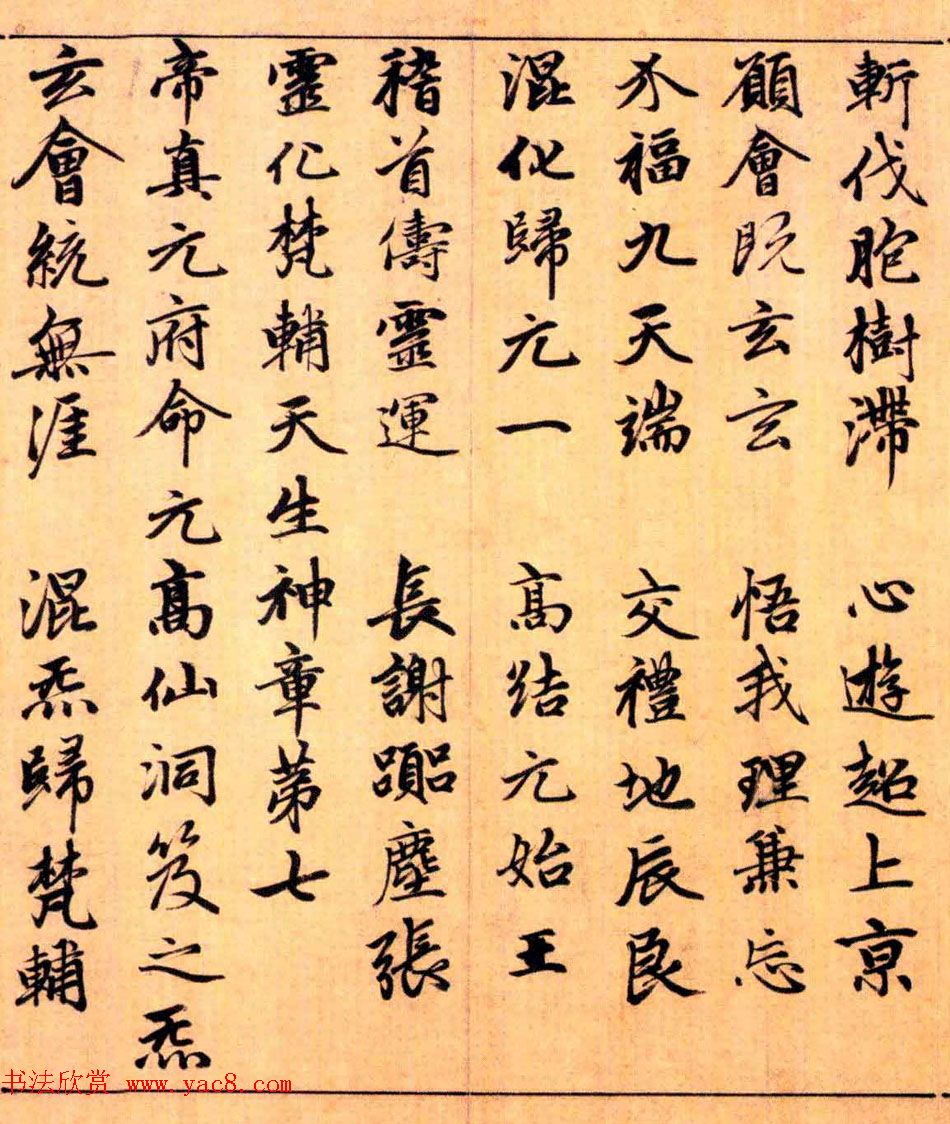 斬伐胞樹滯 心遊超上京
願會既玄玄 悟我理兼忘
介福九天端 交禮地辰良
混化歸元一 高結元始王
稽首儔靈運 長謝囂塵張
靈化梵輔天生神章第七
帝真元府命元高仙洞笈之炁
玄會統無涯 混炁歸梵輔
书法欣赏 www.yac8.com